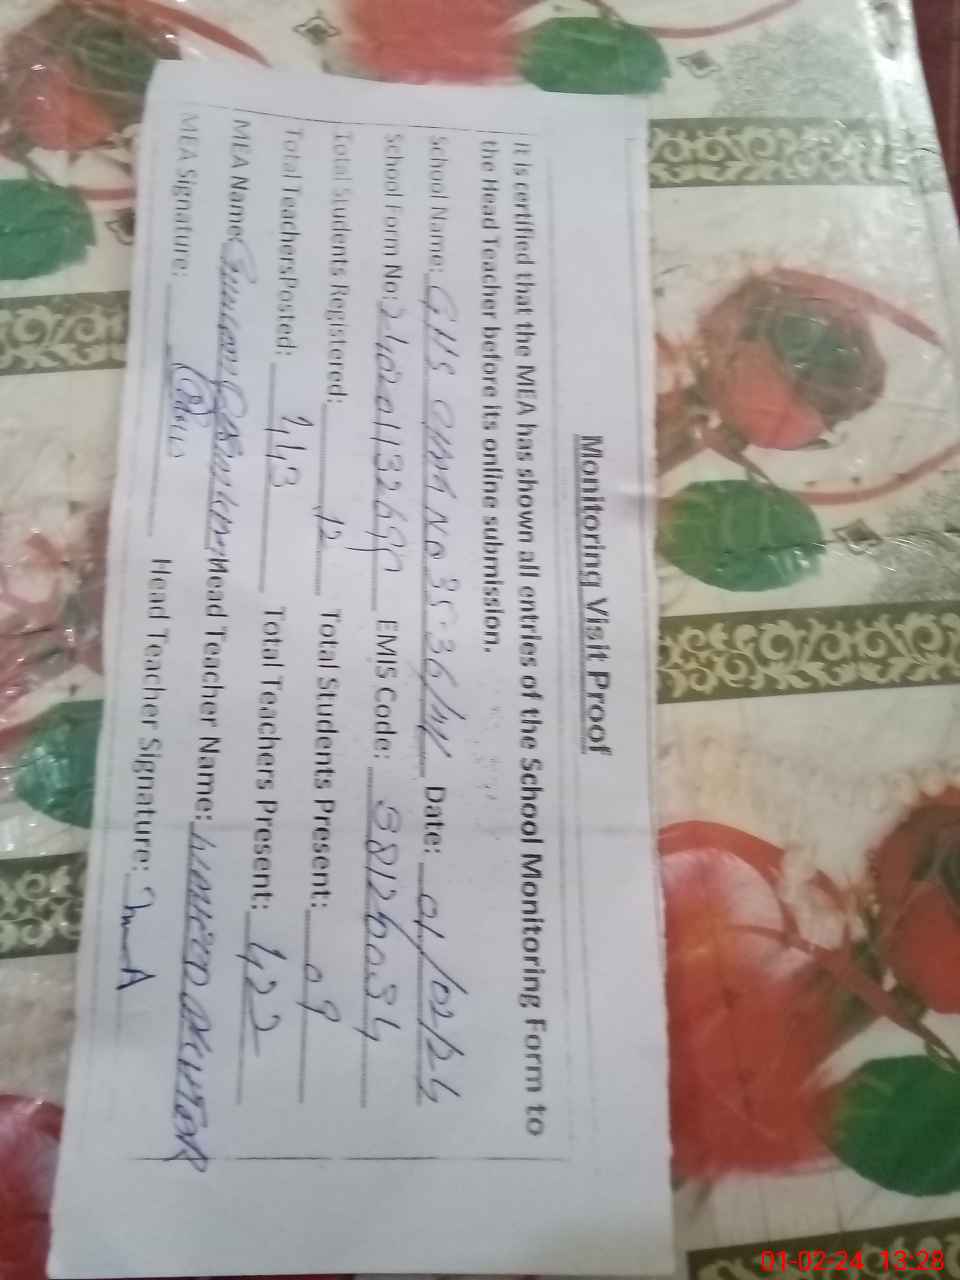 Monitoring Visit Proof
It is certified that the MEA has shown all entries of the School Monitoring Form to
the Head Teacher before its online submission.
School Name: GHS No 35 Date: 01/02/24
School Form No: EMIS Code: 38126034
Total Students Registered: 12 Total Students Present: 09
Total TeachersPosted: 443 Total Teachers Present: 422
MEA Name: Head Teacher Name:
MEA Signature: Head Teacher Signature:
01-02-24 13:28